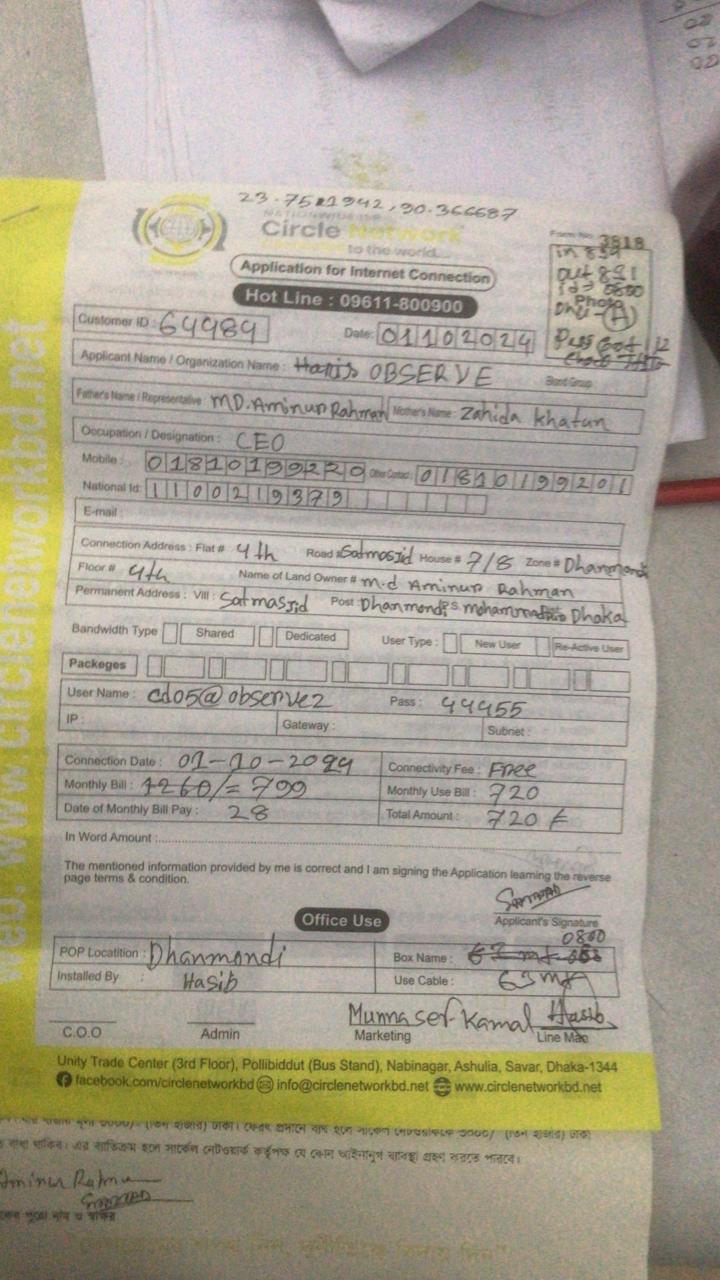 23.7511942, 90.366687
NATIONWIDE ISP
Circle Network
Connecting to the world...
Application for Internet Connection
Hot Line : 09611-800900
Form No. 3818
in 859
out 851
id => 0800
Photo
Onu-(A)
Customer ID : 64984
Date: 01102024
Applicant Name / Organization Name : Haris OBSERVE
Blood Group
Father's Name / Representative : MD. Aminur Rahman Mother's Name : Zahida Khatun
Occupation / Designation : CEO
Mobile : 01810199220 Other Contact : 01810199201
National Id: 1100219379
E-mail :
Connection Address : Flat # 4th Road # Satmosjid House # 7/8 Zone # Dhanmondi
Floor # 4th Name of Land Owner # M.d Aminur Rahman
Permanent Address : Vill : Satmasjid Post : Dhanmondi P.S Dhaka
Bandwidth Type Shared Dedicated User Type : New User Re-Active User
Packeges
User Name : cd05@observe2 Pass : 44455
IP : Gateway : Subnet :
Connection Date : 01-10-2024 Connectivity Fee : Free
Monthly Bill : 1260/= 799 Monthly Use Bill : 720
Date of Monthly Bill Pay : 28 Total Amount : 720
In Word Amount :
The mentioned information provided by me is correct and I am signing the Application learning the reverse
page terms & condition.
Applicant's Signature
Office Use
0800
POP Locatition : Dhanmondi Box Name :
Installed By : Hasib Use Cable : 63 mt
Munnasef Kamal Hasib
C.O.O Admin Marketing Line Man
Unity Trade Center (3rd Floor), Pollibiddut (Bus Stand), Nabinagar, Ashulia, Savar, Dhaka-1344
facebook.com/circlenetworkbd info@circlenetworkbd.net www.circlenetworkbd.net
web: www.circlenetworkbd.net
বাধ্য থাকিব। এর ব্যতিক্রম হলে সার্কেল নেটওয়ার্ক কর্তৃপক্ষ যে কোন আইনানুগ ব্যবস্থা গ্রহণ করতে পারবে।